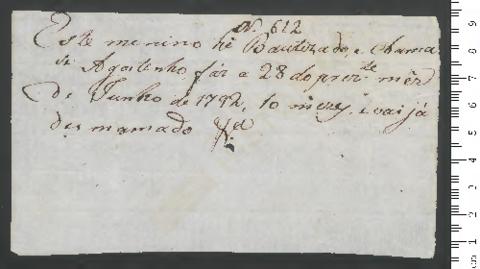 N. 612
Este menino hé Bautizado, e chama
se Agostinho, fás a 28 do prezte. mêz
de Junho de 1792, 10 mezes e vai já
desmamado